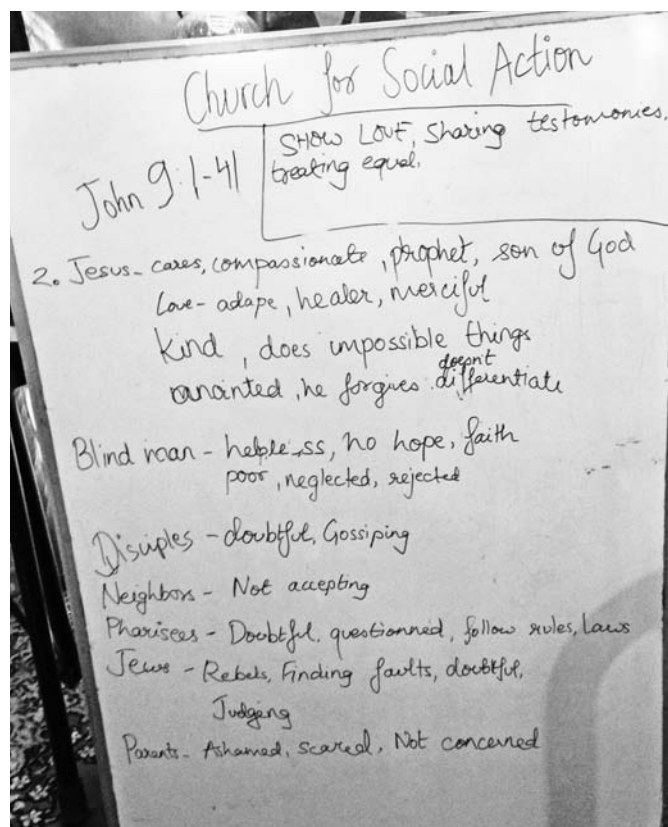 Church for Social Action
John 9:1-41
SHOW LOVE, Sharing testomonies,
treating equal.
2. Jesus - cares, compassionate, prophet, son of God
Love - adape, healer, merciful
Kind, does impossible things
anointed, he forgives. doesn't differentiate
Blind man - helpless, no hope, faith
poor, neglected, rejected
Disciples - doubtful, Gossiping
Neighbors - Not accepting
Pharisees - Doubtful, questionned, follow rules, Laws
Jews - Rebels, Finding faults, doubtful,
Judging
Parents - Ashamed, scared, Not concerned